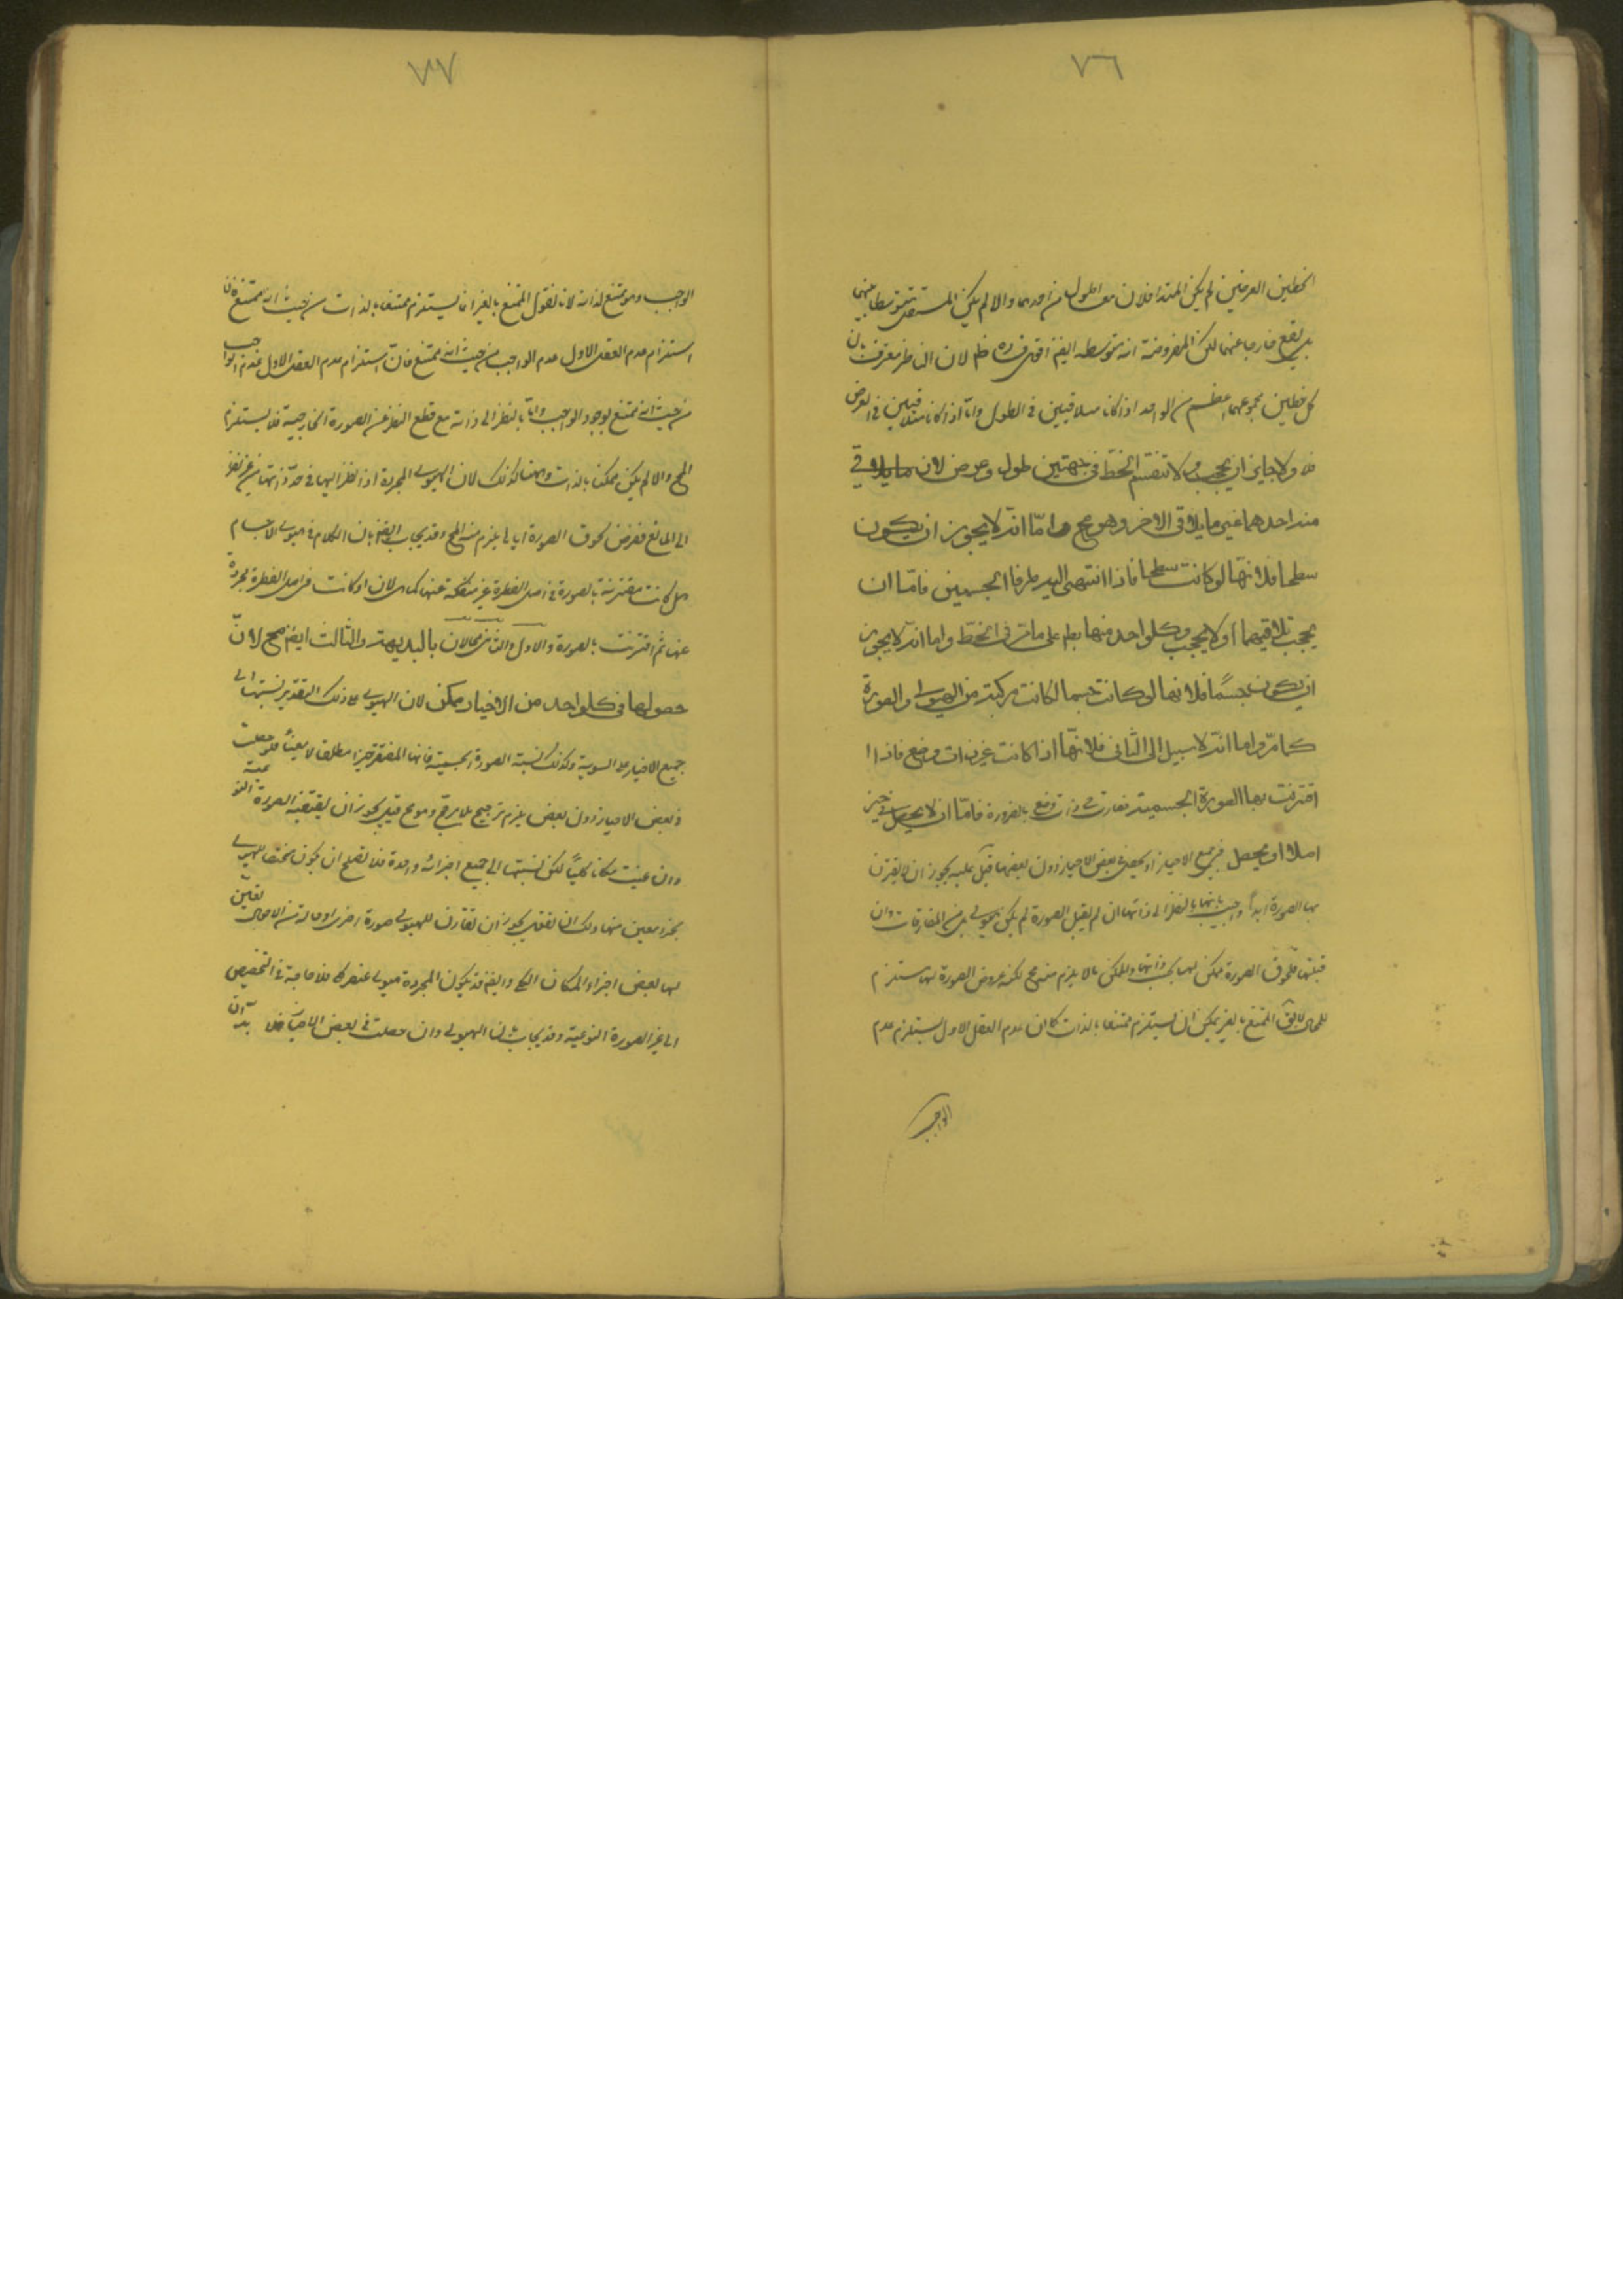 ٧٦
الخطين العرضين لم يكن المتداخلان معا اطول من احدهما والا لم يكن المستقل متوسطا بينهما
بل يقع خارجا عنهما لكن المفروضة انه متوسط ايضا لان الناظر معترف بان
كل خطين مجموعهما اعظم من الواحد اذا كانا متلاقيين في الطول واما اذا كانا متلاقيين في العرض
فلا ولا جايز ان يحجب والا لانقسم الخط في جهتين طول وعرض لان ما يلاقي
منه احدهما غير ما يلاقي الاخر وهو مح واما انه لا يجوز ان يكون
سطحا فلانها لو كانت سطحا فاذا انتهى اليه طرفا الجسمين فاما ان
يحجب تلاقيهما او لا يحجب وكل واحد منها بط على ما مر في الخط واما انه لا يجوز
ان يكون جسمًا فلانها لو كانت جسما لكانت مركبة من الهيولى والصورة
كما مر واما انه لا سبيل الى الثاني فلانها اذا كانت غير ذات وضع فاذا
اقترنت بها الصورة الجسمية فصارت ذات وضع بالضرورة فاما ان لا يحصل في حيز
اصلا او يحصل في جميع الاحياز او يحصل في بعض الاحياز دون بعضها قيل عليه يجوز ان لا يقترن
بها الصورة ابدًا واجيب بانها بالنظر الى ذاتها ان لم يقبل الصورة لم يكن هيولى بل من المفارقات وان
قبلتها فلحوق الصورة ممكن لها بحسب ذاتها والممكن ما لا يلزم منه مح لكنه عروض الصورة لها مستلزم
للمحال لا يق الممتنع بالغير يمكن ان يستلزم ممتنعا بالذات كما ان عدم العقل الاول يستلزم عدم
الواجب
٧٧
الواجب وهو ممتنع لذاته لانا نقول الممتنع بالغير انما يستلزم ممتنعا بالذات من حيث انه ممتنع فان
استلزام عدم العقل الاول عدم الواجب من حيث انه ممتنع فان استلزام عدم العقل الاول عدم الواجب
من حيث انه ممتنع بوجود الواجب واما بالنظر الى ذاته مع قطع النظر عن الصورة الخارجية فلا يستلزم
المح والا لم يكن ممكنا بالذات وههنا كذلك لان الهيولى المجردة اذا نظر اليها في حد ذاتها من غير نظر
الى المانع ففرض لحوق الصورة اياها يلزم منه المح وقد يجاب ايضا بان الكلام في هيولى الاجسام
هل كانت مقترنة بالصورة في اصل الفطرة غير منفكة عنها كما هي الان او كانت في اصل الفطرة مجردة
عنها ثم اقترنت بالصورة والاول والثاني محالان بالبديهة والثالث ايضا مح لان
حصولها في كل واحد من الاحياز ممكن لان الهيولى على ذلك التقدير نسبتها الى
جميع الاحياز على السوية وكذلك نسبة الصورة الجسمية فانها المقتضية حيزا مطلقا لا معينًا فلو حصلت
في بعض الاحياز دون بعض يلزم ترجيح بلا مرجح وهو مح قيل يجوز ان يقتضيه الصورة النوعية
وان عينت مكانا كليًا لكن نسبتها الى جميع اجزائه واحدة فلا تصلح ان يكون مخصصا للهيولى
بجزء معين منها ولك ان تقول يجوز ان تقارن للهيولى صورة اخرى او حالة من الاحوال تعين
لها بعض اجزاء المكان الكلي وايضا قد يكون المجردة هيولى عنصر كلي فلا حاجة في التخصيص
الى غير الصورة النوعية وقد يجاب بان الهيولى وان حصلت في بعض الاحياز بد ان